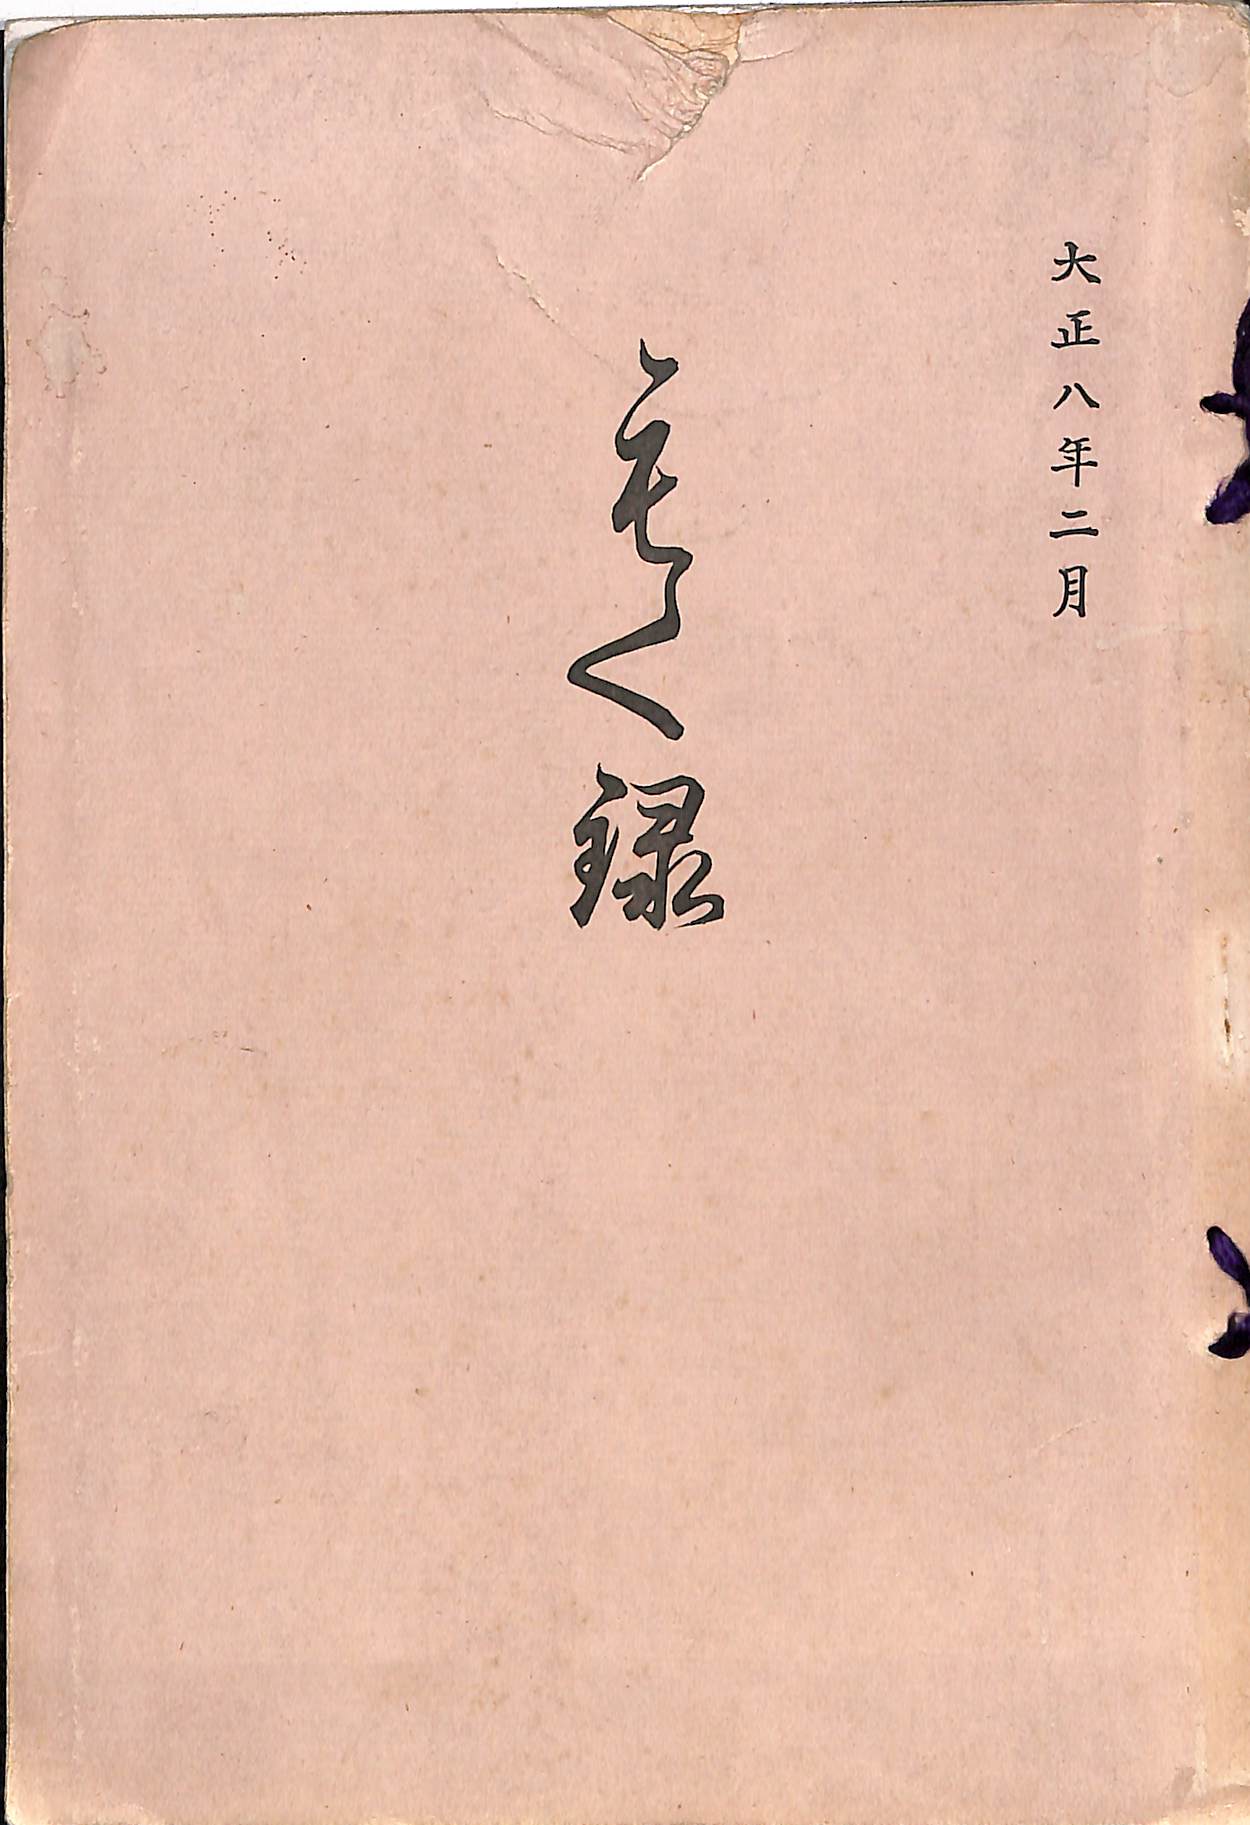 大正八年二月
もく録